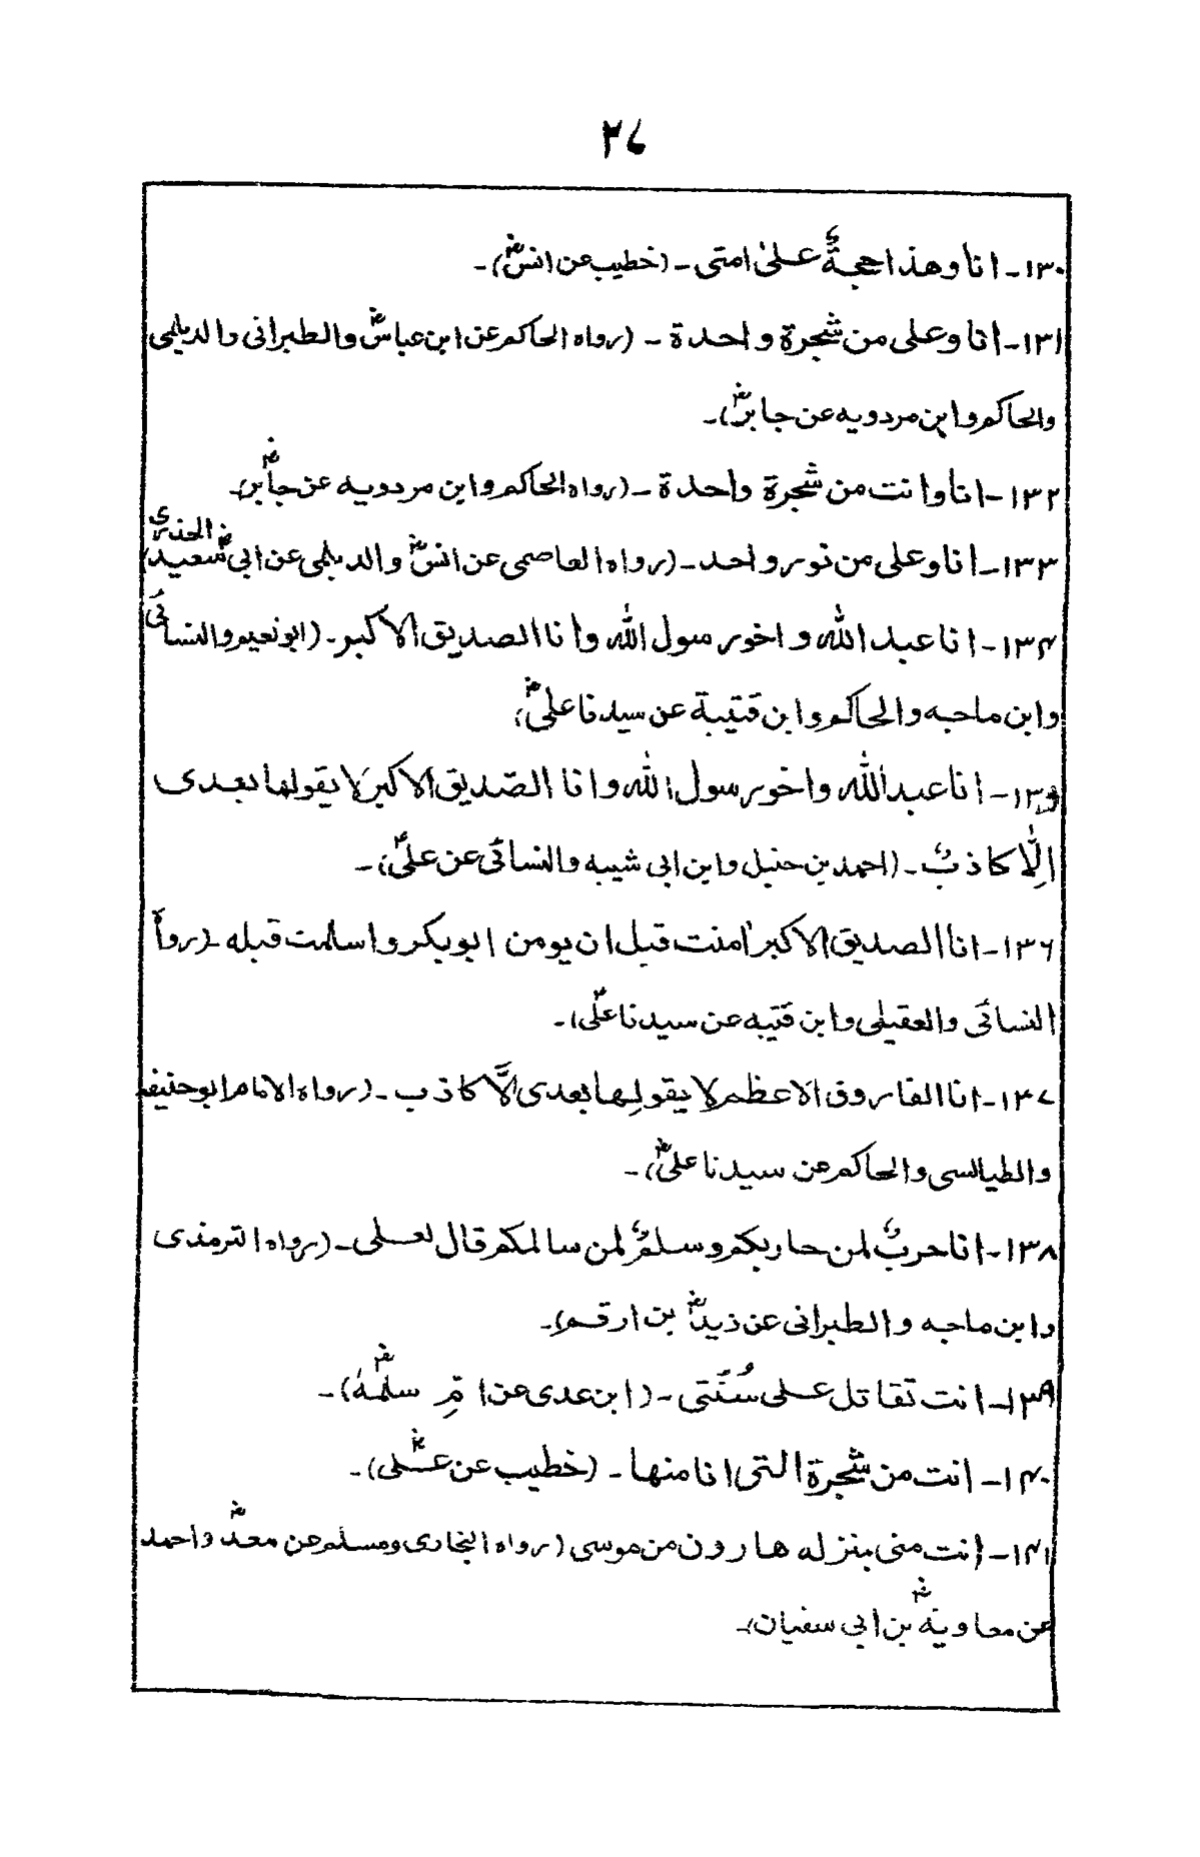 ۲۷
۱۳۰۔ انا وهذا حجةٌ علىٰ امتى۔ (خطيب عن انسؓ)۔
۱۳۱۔ انا وعلى من شجرة واحدة ۔ (رواه الحاكم عن ابن عباسؓ والطبرانى والديلمى
والحاكم وابن مردويه عن جابرؓ)۔
۱۳۲۔ انا وانت من شجرة واحدة ۔ (رواه الحاكم وابن مردويه عن جابرؓ)۔
۱۳۳۔ انا وعلى من نور واحد۔ (رواه العاصمى عن انسؓ والديلمى عن ابى سعيدؓ الخدرى)
۱۳۴۔ انا عبد الله واخو رسول الله وانا الصديق الاكبر۔ (ابو نعيم والنسائى
وابن ماجه والحاكم وابن قتيبة عن سيدنا علىؓ)
۱۳۵۔ انا عبد الله واخو رسول الله وانا الصّديق الاكبر لا يقولها بعدى
اِلّا كاذبٌ۔ (احمد بن حنبل وابن ابى شيبه والنسائى عن علىؓ)۔
۱۳۶۔ انا الصديق الاكبر اٰمنت قبل ان يومن ابوبكر واسلمت قبله ۔(رواه
النسائى والعقيلى وابن قتيبه عن سيدنا علىؓ)۔
۱۳۷۔ انا الفاروق الاعظم لا يقولها بعدى الَّا كاذب ۔ (رواه الامام ابو حنيفه
والطيالسى والحاكم عن سيدنا علىؓ)۔
۱۳۸۔ انا حربٌ لمن حاربكم وسلمٌ لمن سالمكم قال لعلى۔ (رواه الترمذى
وابن ماجه والطبرانى عن زيدؓ بن ارقم)۔
۱۳۹۔ انت تقاتل على سُنّتى ۔ (ابن عدى عن امِّ سلمهؓ)۔
۱۴۰۔ انت من شجرة التى انا منها ۔ (خطيب عن علىؓ)۔
۱۴۱۔ انت منى بمنزله هارون من موسى (رواه البخارى ومسلم عن سعدؓ واحمد
عن معاويةؓ بن ابى سفيان)۔